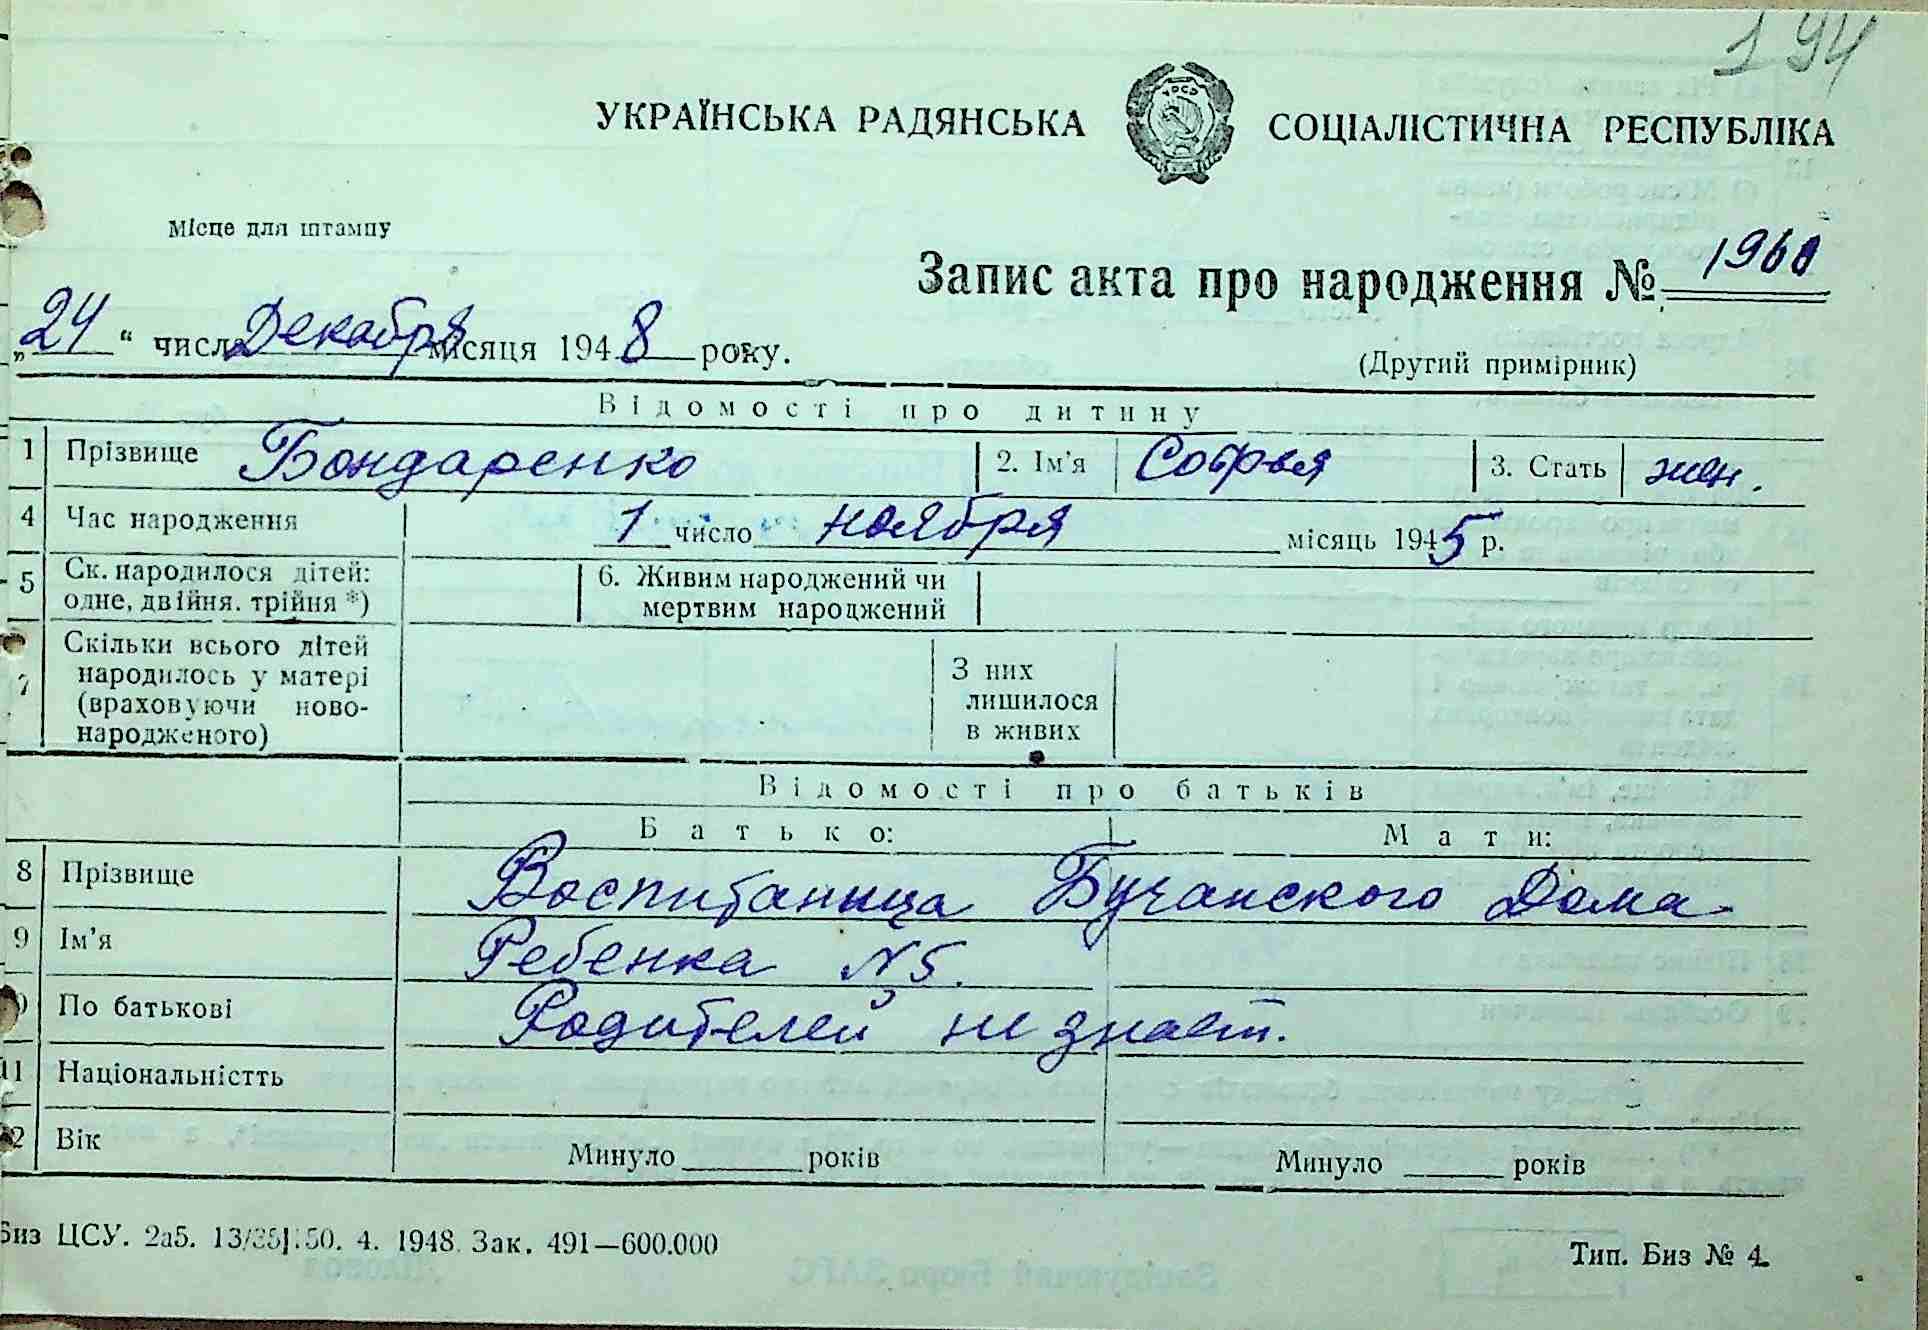 194
УКРАЇНСЬКА РАДЯНСЬКА СОЦІАЛІСТИЧНА РЕСПУБЛІКА
УОСР
Місце для штампу
Запис акта про народження № 1960
„24“ число Декабря місяця 1948 року.
(Другий примірник)
Відомості про дитину
1 Прізвище Бондаренко 2. Ім'я Софья 3. Стать жен.
4 Час народження 1 число ноября місяць 1945 р.
5 Ск. народилося дітей: одне, двійня. трійня *) 6. Живим народжений чи мертвим народжений
7 Скільки всього дітей народилось у матері (враховуючи ново-народженого) З них лишилося в живих
Відомості про батьків
Батько: Мати:
8 Прізвище Воспитаница Бучанского Дома
9 Ім'я Ребенка N5.
По батькові Родителей не знает.
11 Національністть
2 Вік Минуло років Минуло років
Биз ЦСУ. 2а5. 4. 1948. Зак. 491—600.000
Тип. Биз № 4.